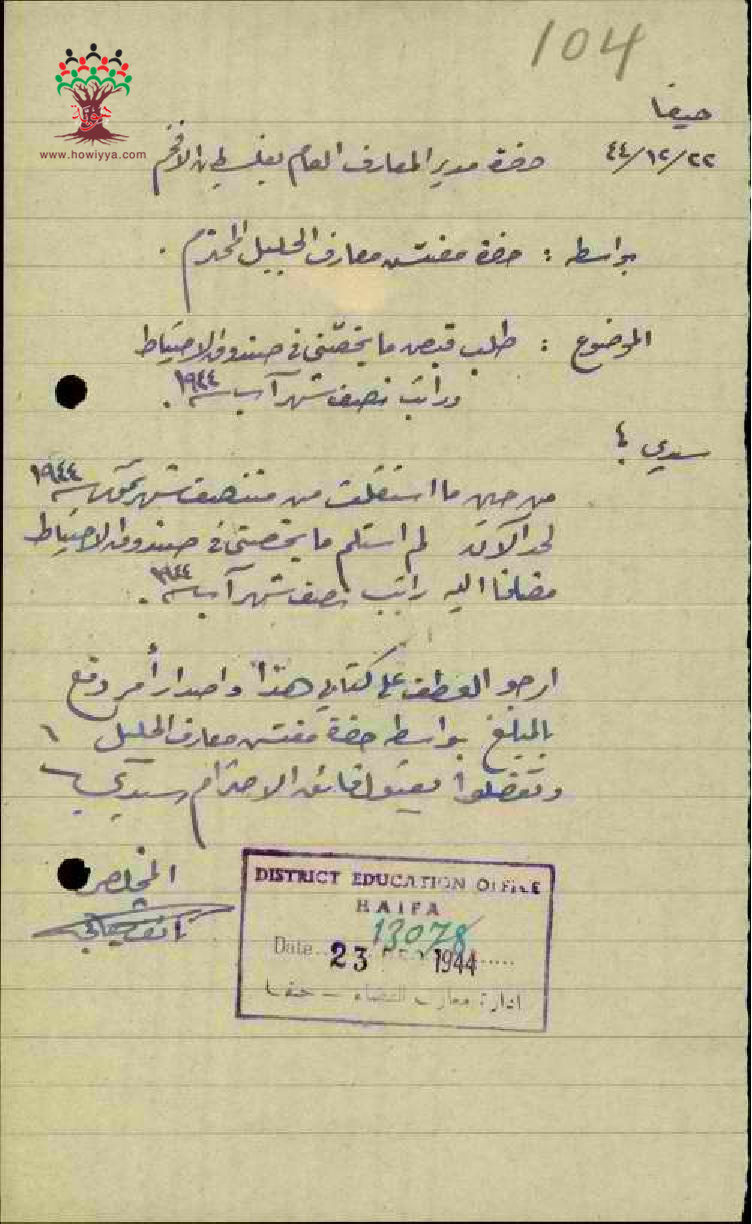 104
هوية
www.howiyya.com
حيفا
٤٤/١٢/٢٢
حضرة مدير المعارف العام بفلسطين الافخم
بواسطة : حضرة مفتش معارف الجليل المحترم .
الموضوع : طلب قبض ما يخصني في صندوق الاحتياط
وراتب نصف شهر آب سنة ١٩٤٤ .
سيدي ؛
من حين ما استقلت من منتصف شهر سنة ١٩٤٤
لحد الآن لم استلم ما يخصني في صندوق الاحتياط
مضافا اليه راتب نصف شهر آب سنة ١٩٤٤ .
ارجو العطف على كتابي هذا واصدار أمر دفع
المبلغ بواسطة حضرة مفتش معارف الجليل ،
وتفضلوا بقبول فائق الاحترام سيدي
المخلص
DISTRICT EDUCATION OFFICE
HAIFA
13078
Date 23 DEC 1944
ادارة معارف القضاء – حيفا